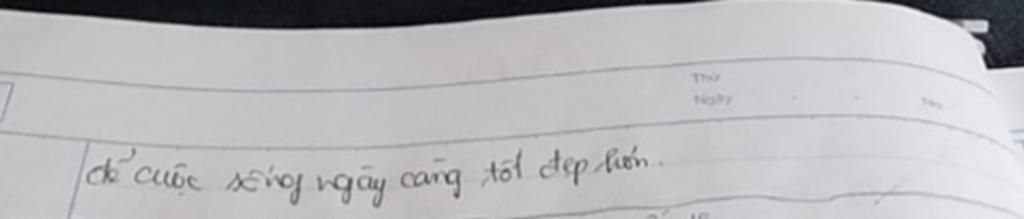 Thứ
Ngày . . No.
để cuộc sống ngày càng tốt đẹp hơn.